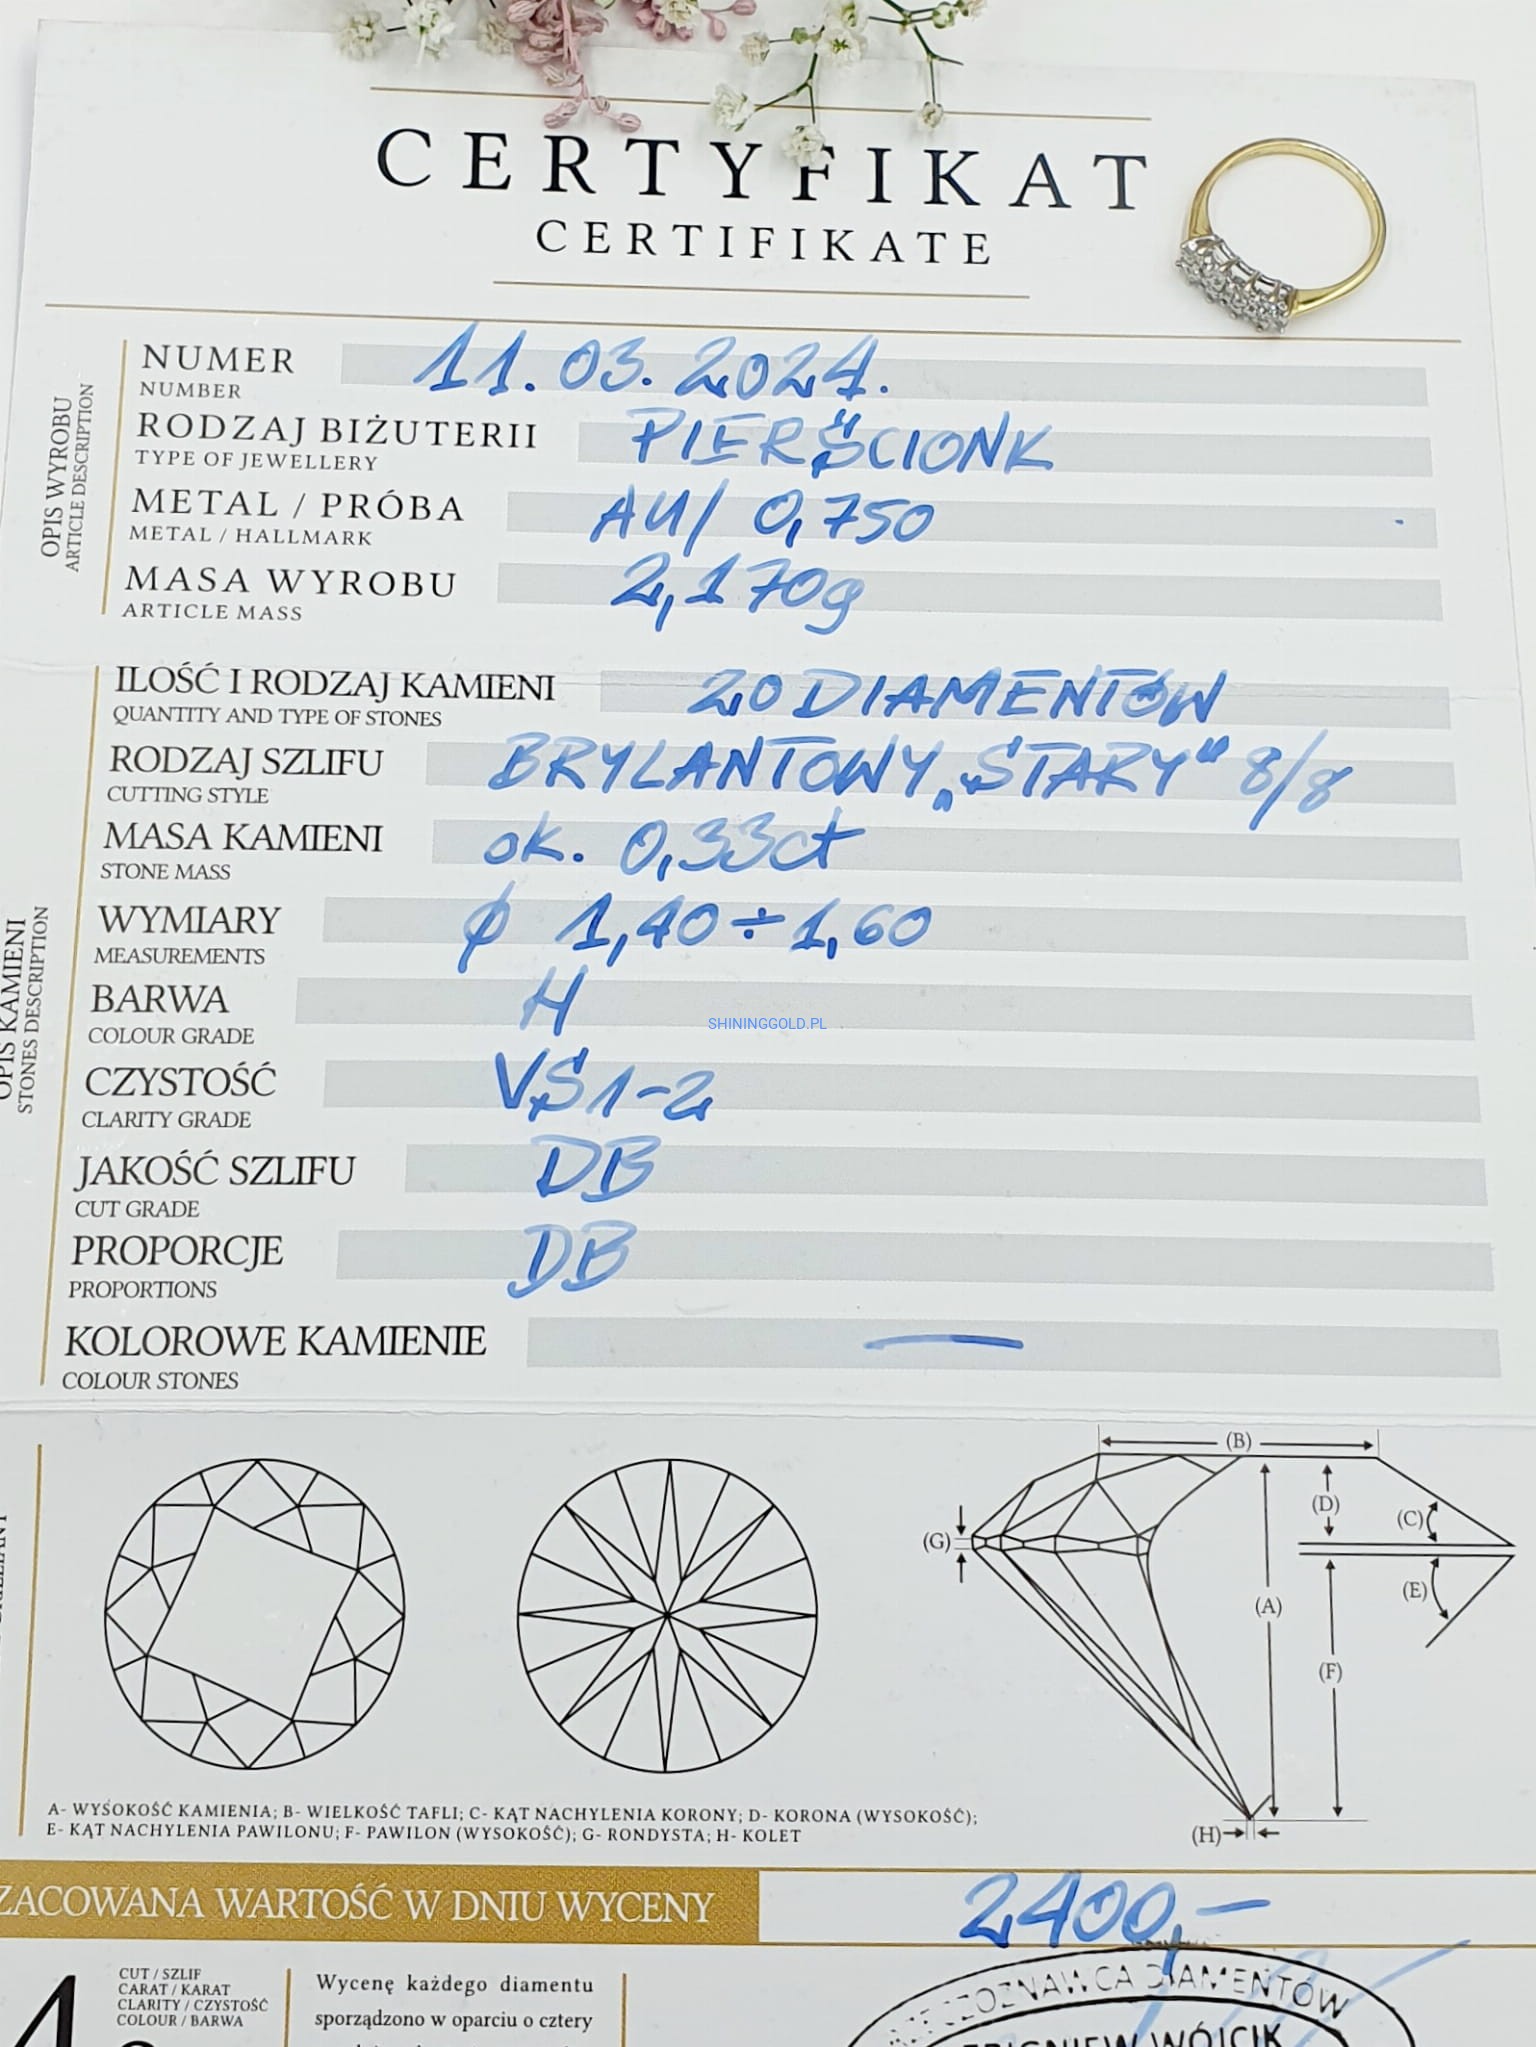 CERTYFIKAT
CERTIFIKATE
OPIS WYROBU
ARTICLE DESCRIPTION
NUMER 11.03.2024.
NUMBER
RODZAJ BIŻUTERII PIERŚCIONK
TYPE OF JEWELLERY
METAL / PRÓBA AU/ 0,750
METAL / HALLMARK
MASA WYROBU 2,170g
ARTICLE MASS
OPIS KAMIENI
STONES DESCRIPTION
ILOŚĆ I RODZAJ KAMIENI 20 DIAMENTÓW
QUANTITY AND TYPE OF STONES
RODZAJ SZLIFU BRYLANTOWY „STARY" 8/8
CUTTING STYLE
MASA KAMIENI ok. 0,33ct
STONE MASS
WYMIARY ϕ 1,40÷1,60
MEASUREMENTS
BARWA H
COLOUR GRADE
SHININGGOLD.PL
CZYSTOŚĆ VS1-2
CLARITY GRADE
JAKOŚĆ SZLIFU DB
CUT GRADE
PROPORCJE DB
PROPORTIONS
KOLOROWE KAMIENIE —
COLOUR STONES
(B)
(D)
(C)
(G)
(E)
(A)
(F)
(H)
A- WYSOKOŚĆ KAMIENIA; B- WIELKOŚĆ TAFLI; C- KĄT NACHYLENIA KORONY; D- KORONA (WYSOKOŚĆ);
E- KĄT NACHYLENIA PAWILONU; F- PAWILON (WYSOKOŚĆ); G- RONDYSTA; H- KOLET
ZACOWANA WARTOŚĆ W DNIU WYCENY 2400,-
CUT / SZLIF
CARAT / KARAT
CLARITY / CZYSTOŚĆ
COLOUR / BARWA
Wycenę każdego diamentu
sporządzono w oparciu o cztery
RZECZOZNAWCA DIAMENTÓW
ZBIGNIEW WÓJCIK